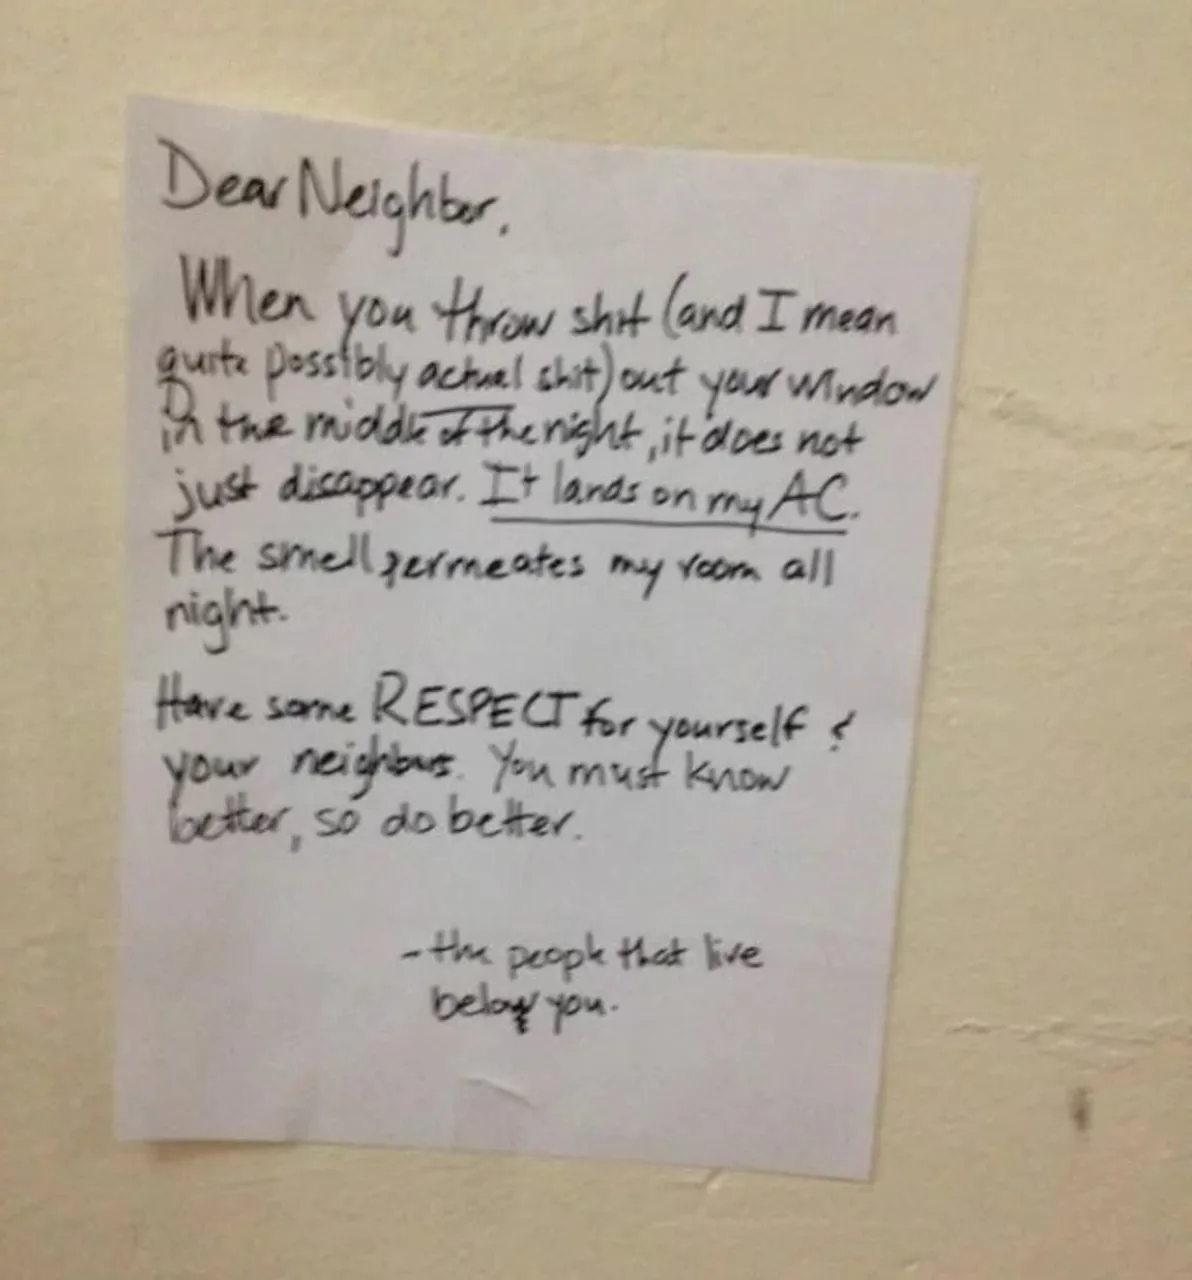 Dear Neighbor,
When you throw shit (and I mean
quite possibly actual shit) out your window
in the middle of the night, it does not
just disappear. It lands on my AC.
The smell permeates my room all
night.
Have some RESPECT for yourself &
your neighbors. You must know
better, so do better.
- the people that live
below you.